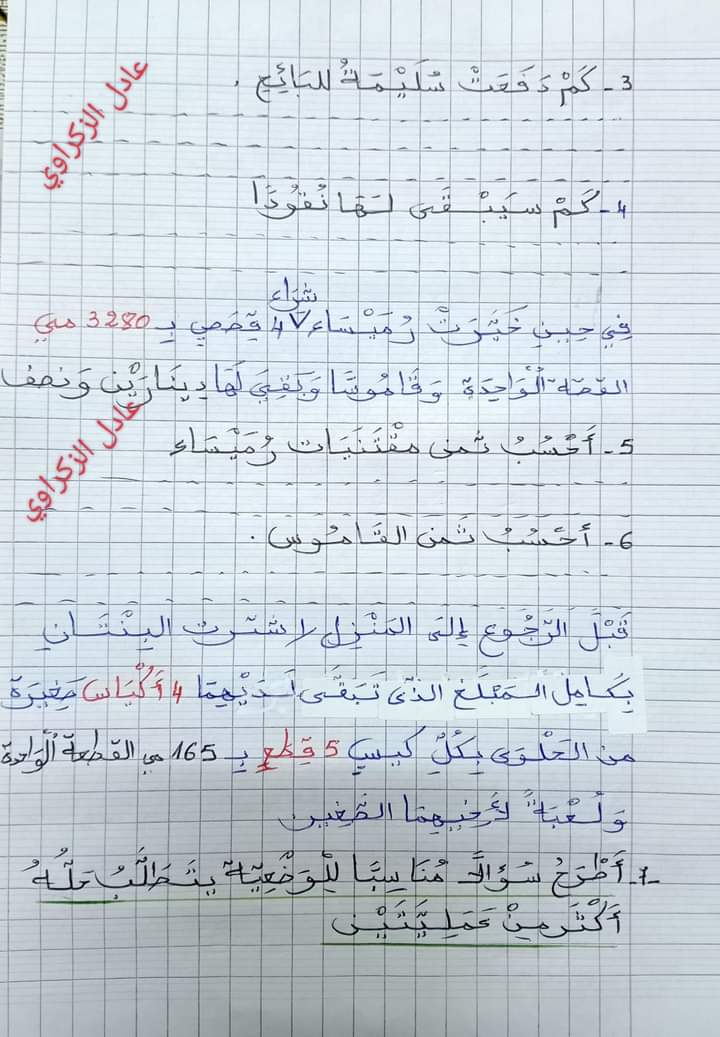 عادل الزكراوي
3- كَمْ دَفَعَتْ سُلَيْمَةُ للبَائِعِ .
4- كَمْ سَيَبْقَى لَهَا نُقُودًا
شِرَاء
فِي حِينِ خَيَّرَتْ رُمَيْسَاء 4 قِصَصٍ بِـ 3280 مي
القصّة الْوَاحِدَة وَقَامُوسًا وَبَقِيَ لَهَا دِينَارَيْن وَنصف
عادل الزكراوي
5- أَحْسُبُ ثمن مقْتَنَيَات رُمَيْسَاء
6- أحْسُبُ ثَمَن القَامُوس .
قَبْلَ الرّجُوعِ إِلَى المَنْزِلِ اشترت البِنْتَانِ
بِكَامِلِ المَبْلَغِ الذي تَبَقَّى لَدَيْهِمَا 4 أَكْيَاس صَغِيرَة
من الحَلْوَى بِكُلِّ كيسٍ 5 قِطَعٍ بِـ 165 مي القطعة الْوَاحدة
وَلُعْبَةً لأَخِيهِمَا الصّغير
7- أَطْرَحُ سُؤَالًا مُنَاسِبًا لِلْوَضْعِيّة يتَطَلّبُ حَلُّهُ
أَكْثَر مِنْ عَمَلِيَّتَيْن